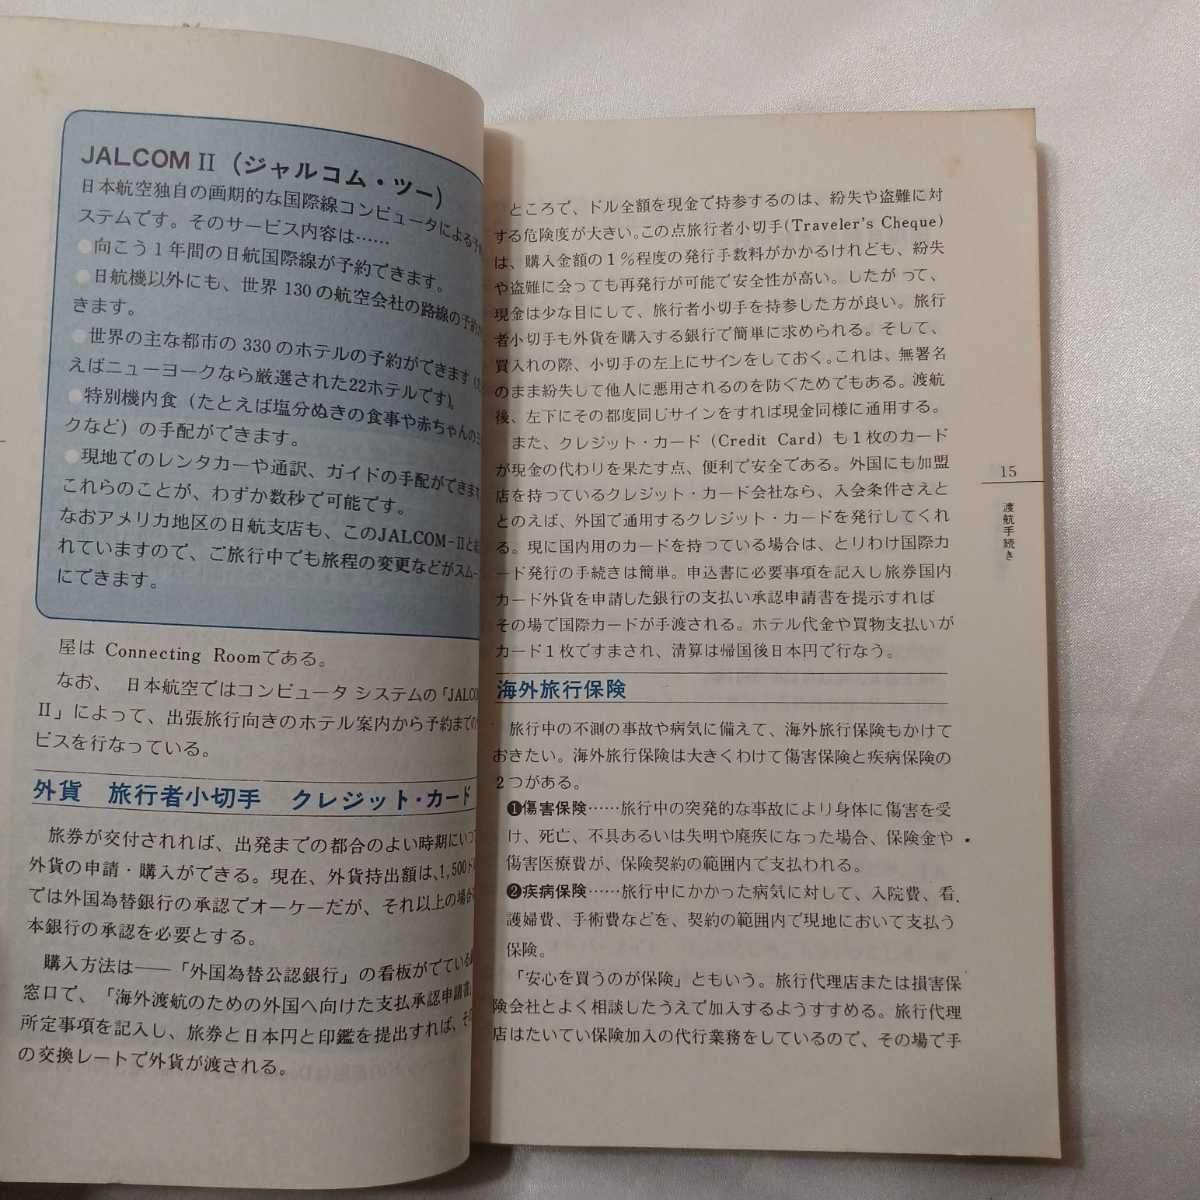 JALCOM II (ジャルコム・ツー)
日本航空独自の画期的な国際線コンピュータによる予
ステムです。そのサービス内容は……
●向こう1年間の日航国際線が予約できます。
●日航機以外にも、世界130の航空会社の路線の予約
きます。
●世界の主な都市の330のホテルの予約ができます
えばニューヨークなら厳選された22ホテルです)。
●特別機内食(たとえば塩分ぬきの食事や赤ちゃんの
クなど)の手配ができます。
●現地でのレンタカーや通訳、ガイドの手配ができます
これらのことが、わずか数秒で可能です。
なおアメリカ地区の日航支店も、このJALCOM-IIと
れていますので、ご旅行中でも旅程の変更などがスムー
にできます。
屋は Connecting Roomである。
なお、日本航空ではコンピュータ システムの「JALCO
II」によって、出張旅行向きのホテル案内から予約までの
ビスを行なっている。
外貨 旅行者小切手 クレジット・カード
旅券が交付されれば、出発までの都合のよい時期にいつ
外貨の申請・購入ができる。現在、外貨持出額は、1,500ド
では外国為替銀行の承認でオーケーだが、それ以上の場合
本銀行の承認を必要とする。
購入方法は——「外国為替公認銀行」の看板がでている
窓口で、「海外渡航のための外国へ向けた支払承認申請書」
所定事項を記入し、旅券と日本円と印鑑を提出すれば、その
の交換レートで外貨が渡される。
ところで、ドル全額を現金で持参するのは、紛失や盗難に対
する危険度が大きい。この点旅行者小切手(Traveler's Cheque)
は、購入金額の1%程度の発行手数料がかかるけれども、紛失
や盗難に会っても再発行が可能で安全性が高い。したがって、
現金は少な目にして、旅行者小切手を持参した方が良い。旅行
者小切手も外貨を購入する銀行で簡単に求められる。そして、
買入れの際、小切手の左上にサインをしておく。これは、無署名
のまま紛失して他人に悪用されるのを防ぐためでもある。渡航
後、左下にその都度同じサインをすれば現金同様に通用する。
また、クレジット・カード(Credit Card)も1枚のカード
が現金の代わりを果たす点、便利で安全である。外国にも加盟
店を持っているクレジット・カード会社なら、入会条件さえと
とのえば、外国で通用するクレジット・カードを発行してくれ
る。現に国内用のカードを持っている場合は、とりわけ国際カ
ード発行の手続きは簡単。申込書に必要事項を記入し旅券国内
カード外貨を申請した銀行の支払い承認申請書を提示すれば
その場で国際カードが手渡される。ホテル代金や買物支払いが
カード1枚ですまされ、清算は帰国後日本円で行なう。
海外旅行保険
旅行中の不測の事故や病気に備えて、海外旅行保険もかけて
おきたい。海外旅行保険は大きくわけて傷害保険と疾病保険の
2つがある。
❶傷害保険……旅行中の突発的な事故により身体に傷害を受
け、死亡、不具あるいは失明や廃疾になった場合、保険金や
傷害医療費が、保険契約の範囲内で支払われる。
❷疾病保険……旅行中にかかった病気に対して、入院費、看
護婦費、手術費などを、契約の範囲内で現地において支払う
保険。
「安心を買うのが保険」ともいう。旅行代理店または損害保
険会社とよく相談したうえで加入するようすすめる。旅行代理
店はたいてい保険加入の代行業務をしているので、その場で手
15
渡航手続き